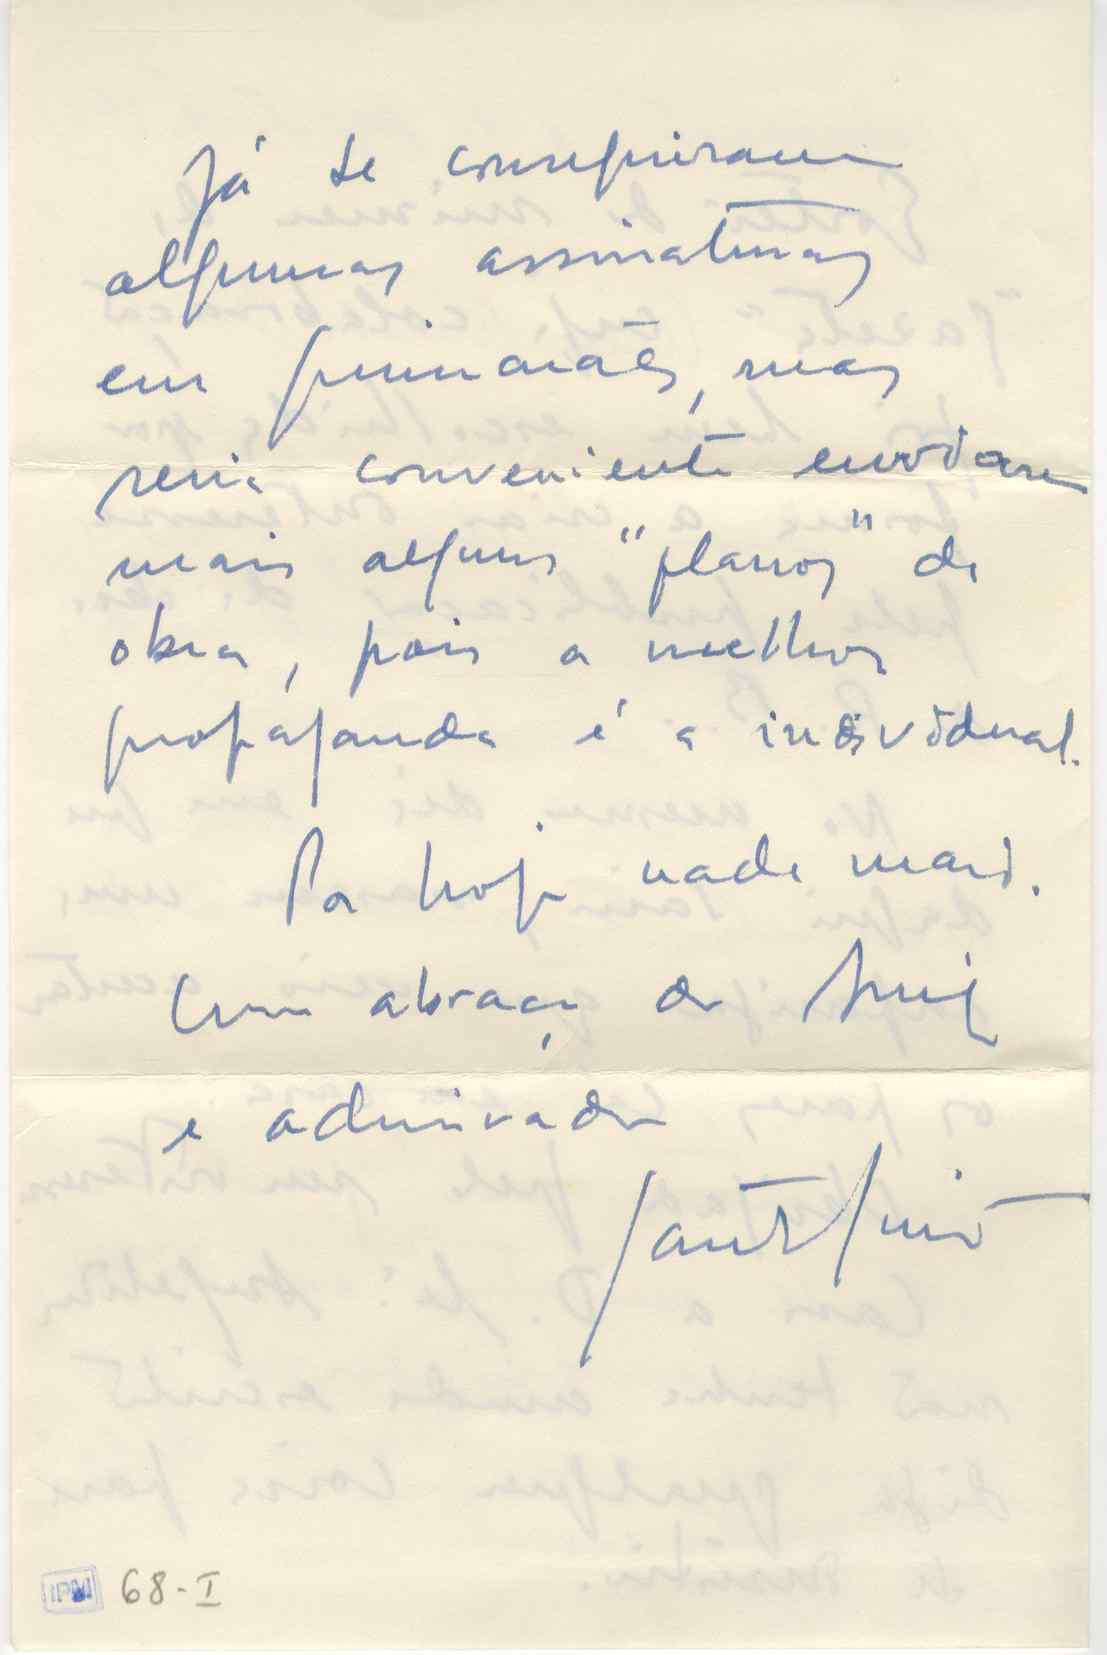 Já se conseguiram
algumas assinaturas
em Guimarães, mas
seria conveniente enviarem
mais alguns "planos" da
obra, pois a melhor
propaganda é a individual.
Por hoje nada mais.
Um abraço do amigo
e admirador
IPM 68-I